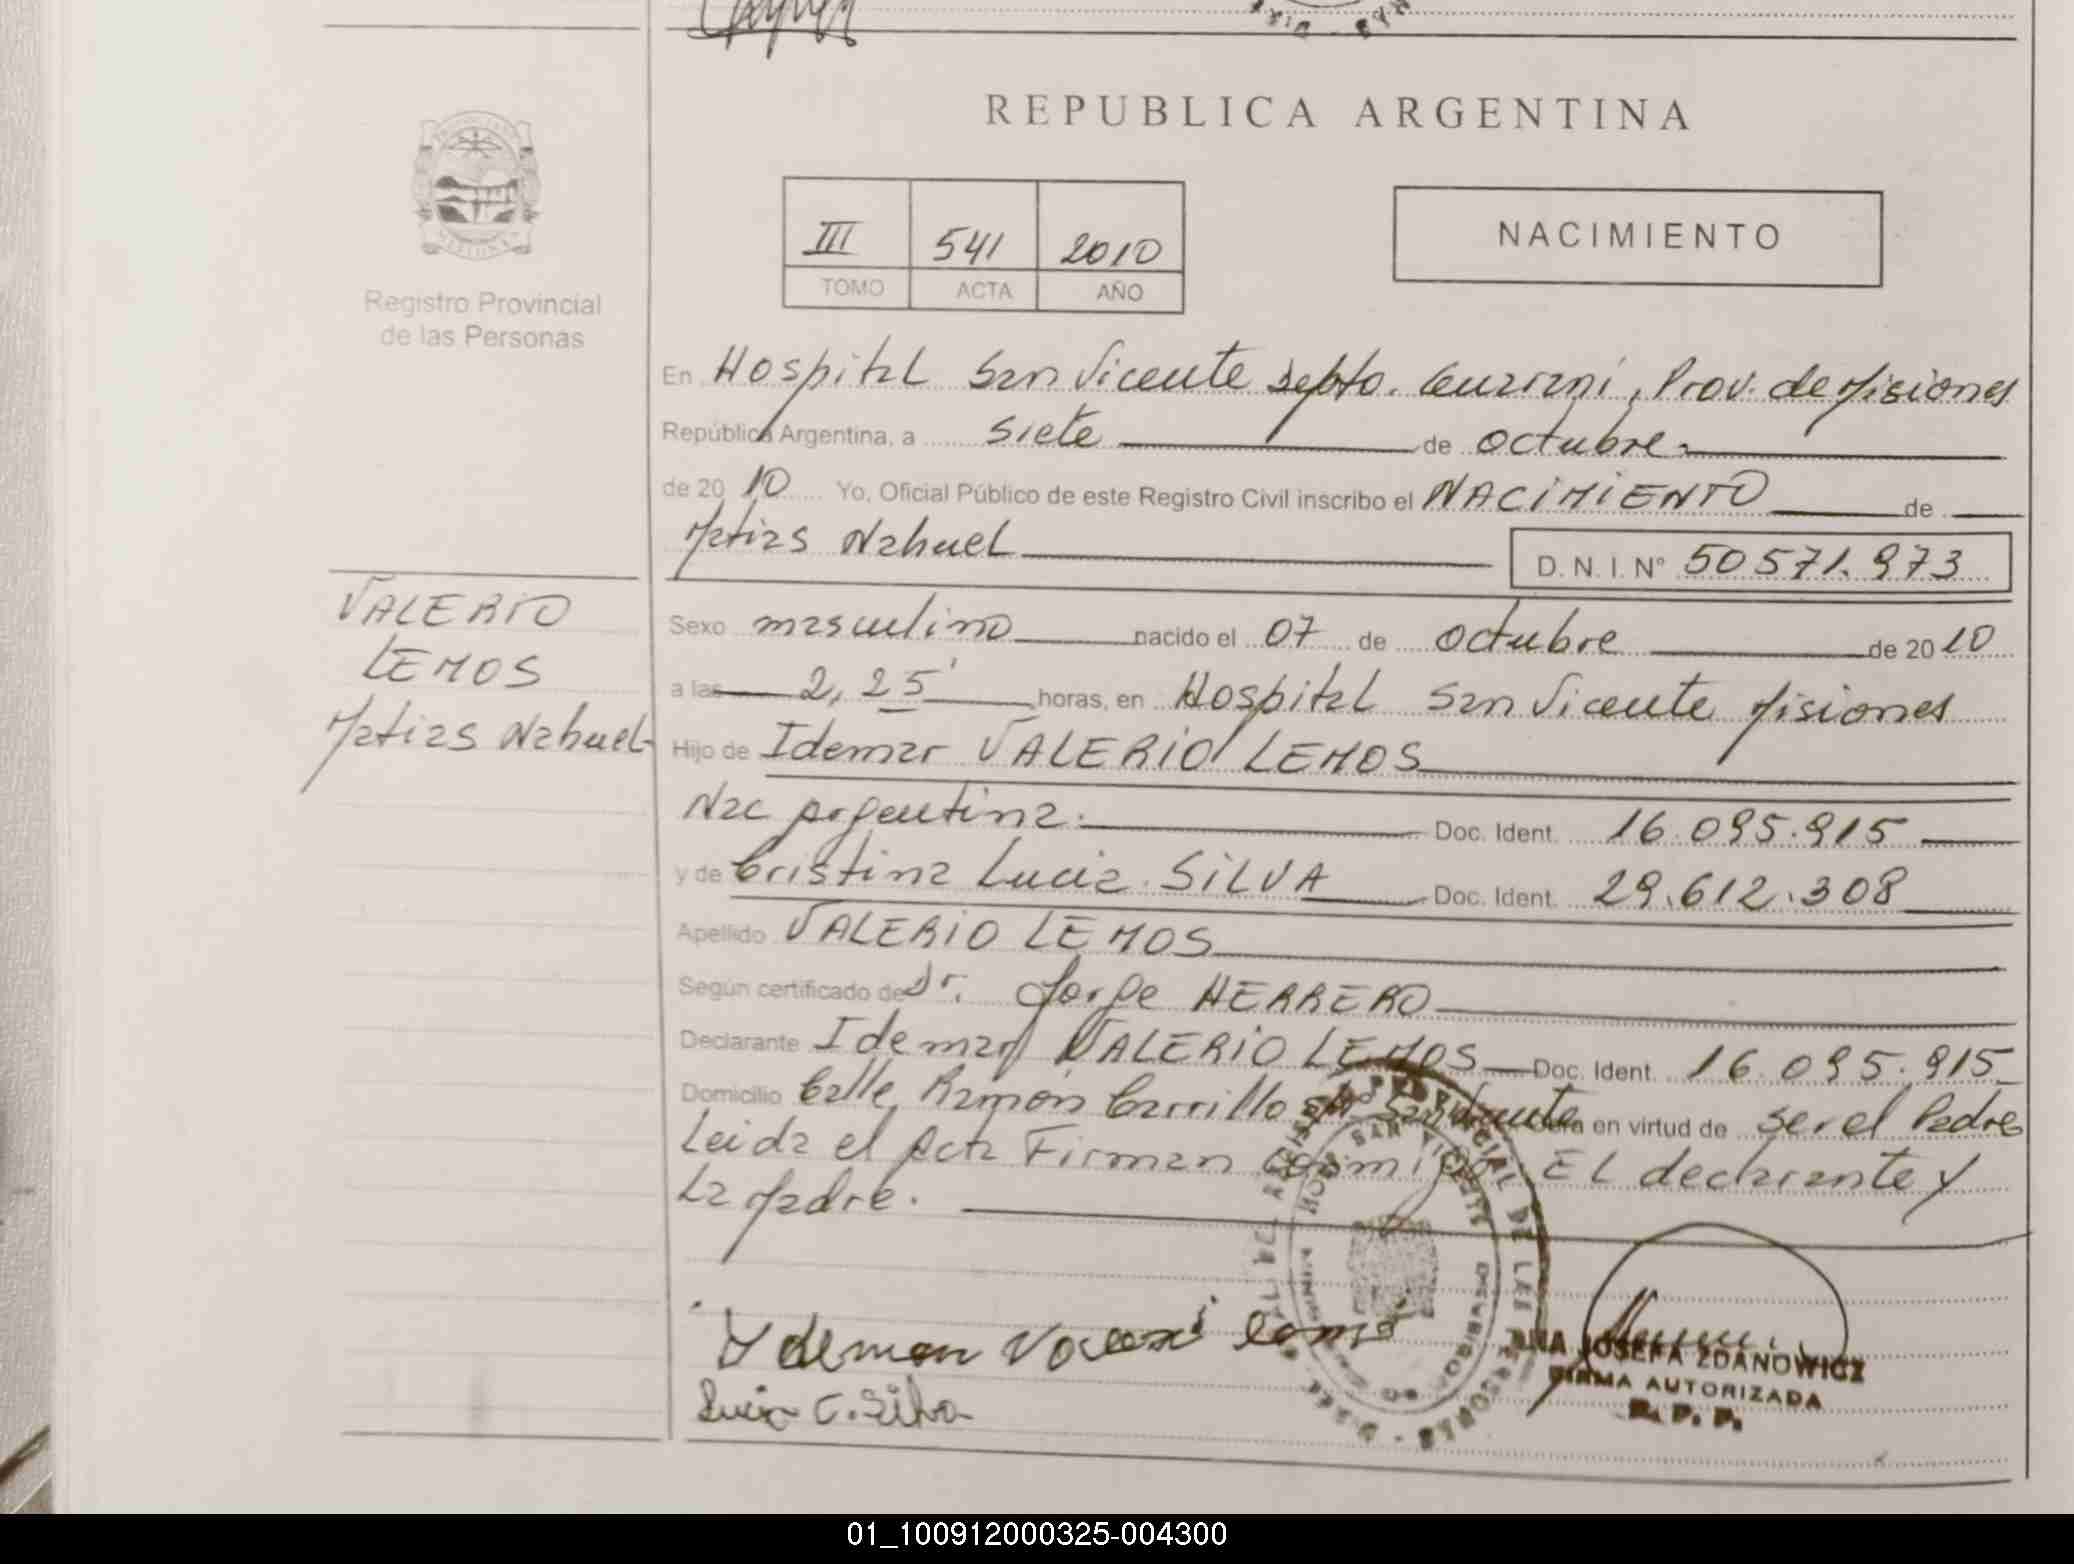 REPUBLICA ARGENTINA
III 541 2010
TOMO ACTA AÑO
NACIMIENTO
Registro Provincial
de las Personas
En Hospital San Vicente Depto. Guarani, Prov. de Misiones
República Argentina, a siete de octubre
de 2010 Yo, Oficial Público de este Registro Civil inscribo el NACIMIENTO de
Matias Nahuel
D. N. I. N° 50571.973
VALERIO
LEMOS
Matias Nahuel
Sexo masculino nacido el 07 de octubre de 2010
a las 2,25' horas, en Hospital San Vicente Misiones
Hijo de Idemar VALERIO LEMOS
Nac argentina. Doc. Ident. 16.095.915
y de Cristina Lucia SILVA Doc. Ident. 29.612.308
Apellido VALERIO LEMOS
Según certificado de Dr. Jorge HERRERO
Declarante Idemar VALERIO LEMOS Doc. Ident. 16.095.915
Domicilio Calle Ramón Carrillo San Vicente en virtud de ser el Padre
Leida el Acta Firman conmigo EL declarante y
La Madre.
Lucia C. Silva
ANA JOSEFA ZDANOWICZ
FIRMA AUTORIZADA
R. P. P.
01_100912000325-004300